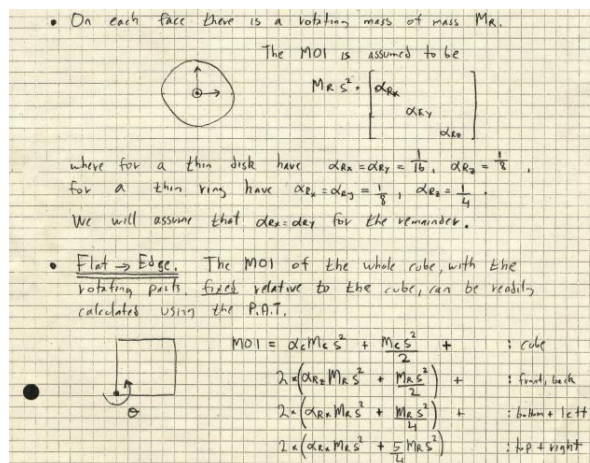 • On each face there is a rotating mass of mass MR.
The MOI is assumed to be
MR s². [αRx
αRy
αRz]
where for a thin disk have αRx = αRy = 1/16, αRz = 1/8,
for a thin ring have αRx = αRy = 1/8, αRz = 1/4.
We will assume that αRx = αRy for the remainder.
• Flat → Edge. The MOI of the whole cube, with the
rotating parts fixed relative to the cube, can be readily
calculated using the P.A.T.
MOI = αcMcs² + Mcs²/2 + : cube
2×(αRzMRs² + MRs²/2) + : front, back
θ
2×(αRxMRs² + MRs²/4) + : bottom + left
2×(αRxMRs² + 5/4 MRs²) : top + right